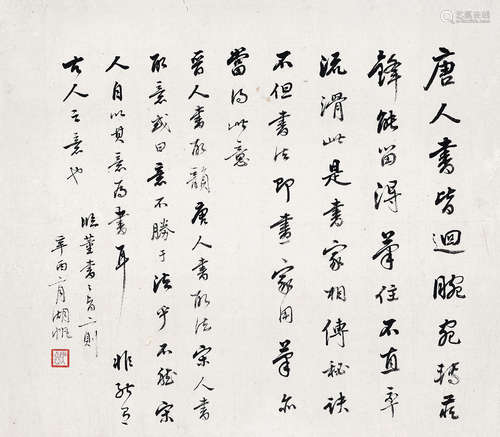 唐人書皆迴腕宛轉藏
鋒能留得筆住不直率
流滑此是書家相傳秘訣
不但書法即畫家用筆亦
當得此意
晉人書取韻唐人書取法宋人書
取意或曰意不勝于法乎不然宋
人自以其意為書耳非能有
古人之意也
臨董書〻旨二則
月湖帆